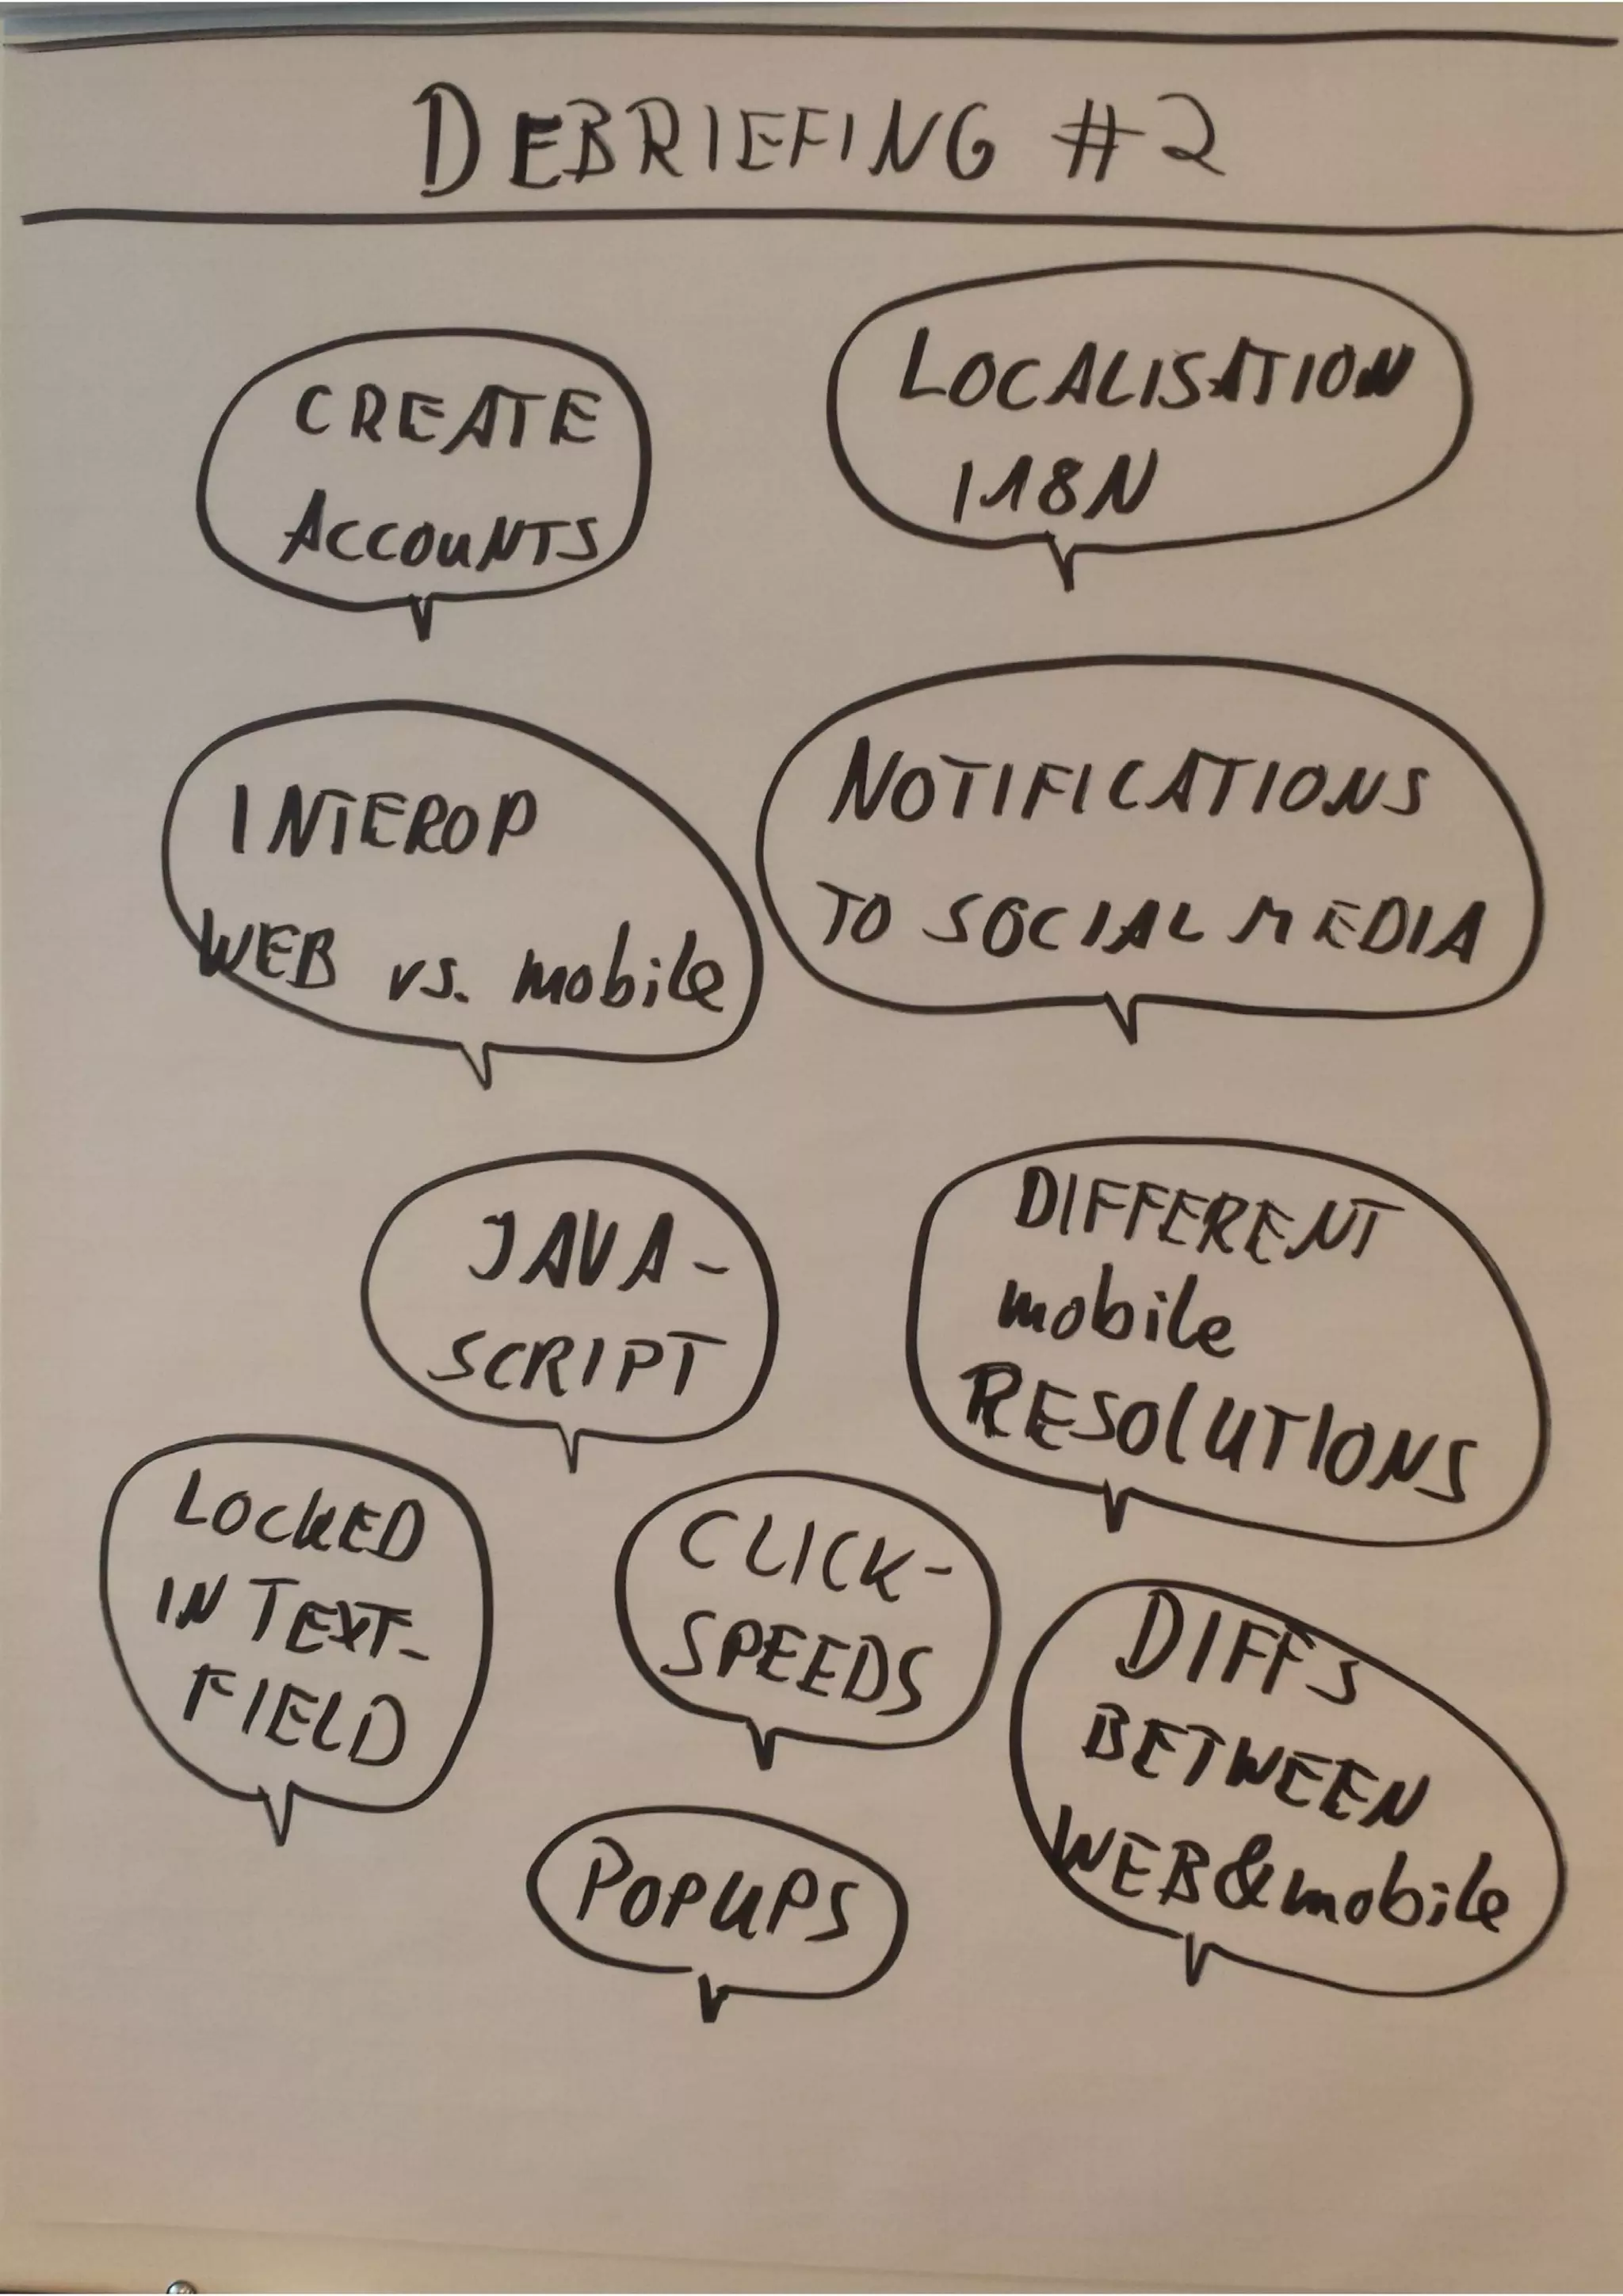 DEBRIEFING #2
CREATE
ACCOUNTS
LOCALISATION
I18N
INTEROP
WEB vs. mobile
NOTIFICATIONS
TO SOCIAL MEDIA
JAVA-
SCRIPT
DIFFERENT
mobile
RESOLUTIONS
LOCKED
IN TEXT-
FIELD
CLICK-
SPEEDS
DIFFS
BETWEEN
WEB & mobile
POPUPS